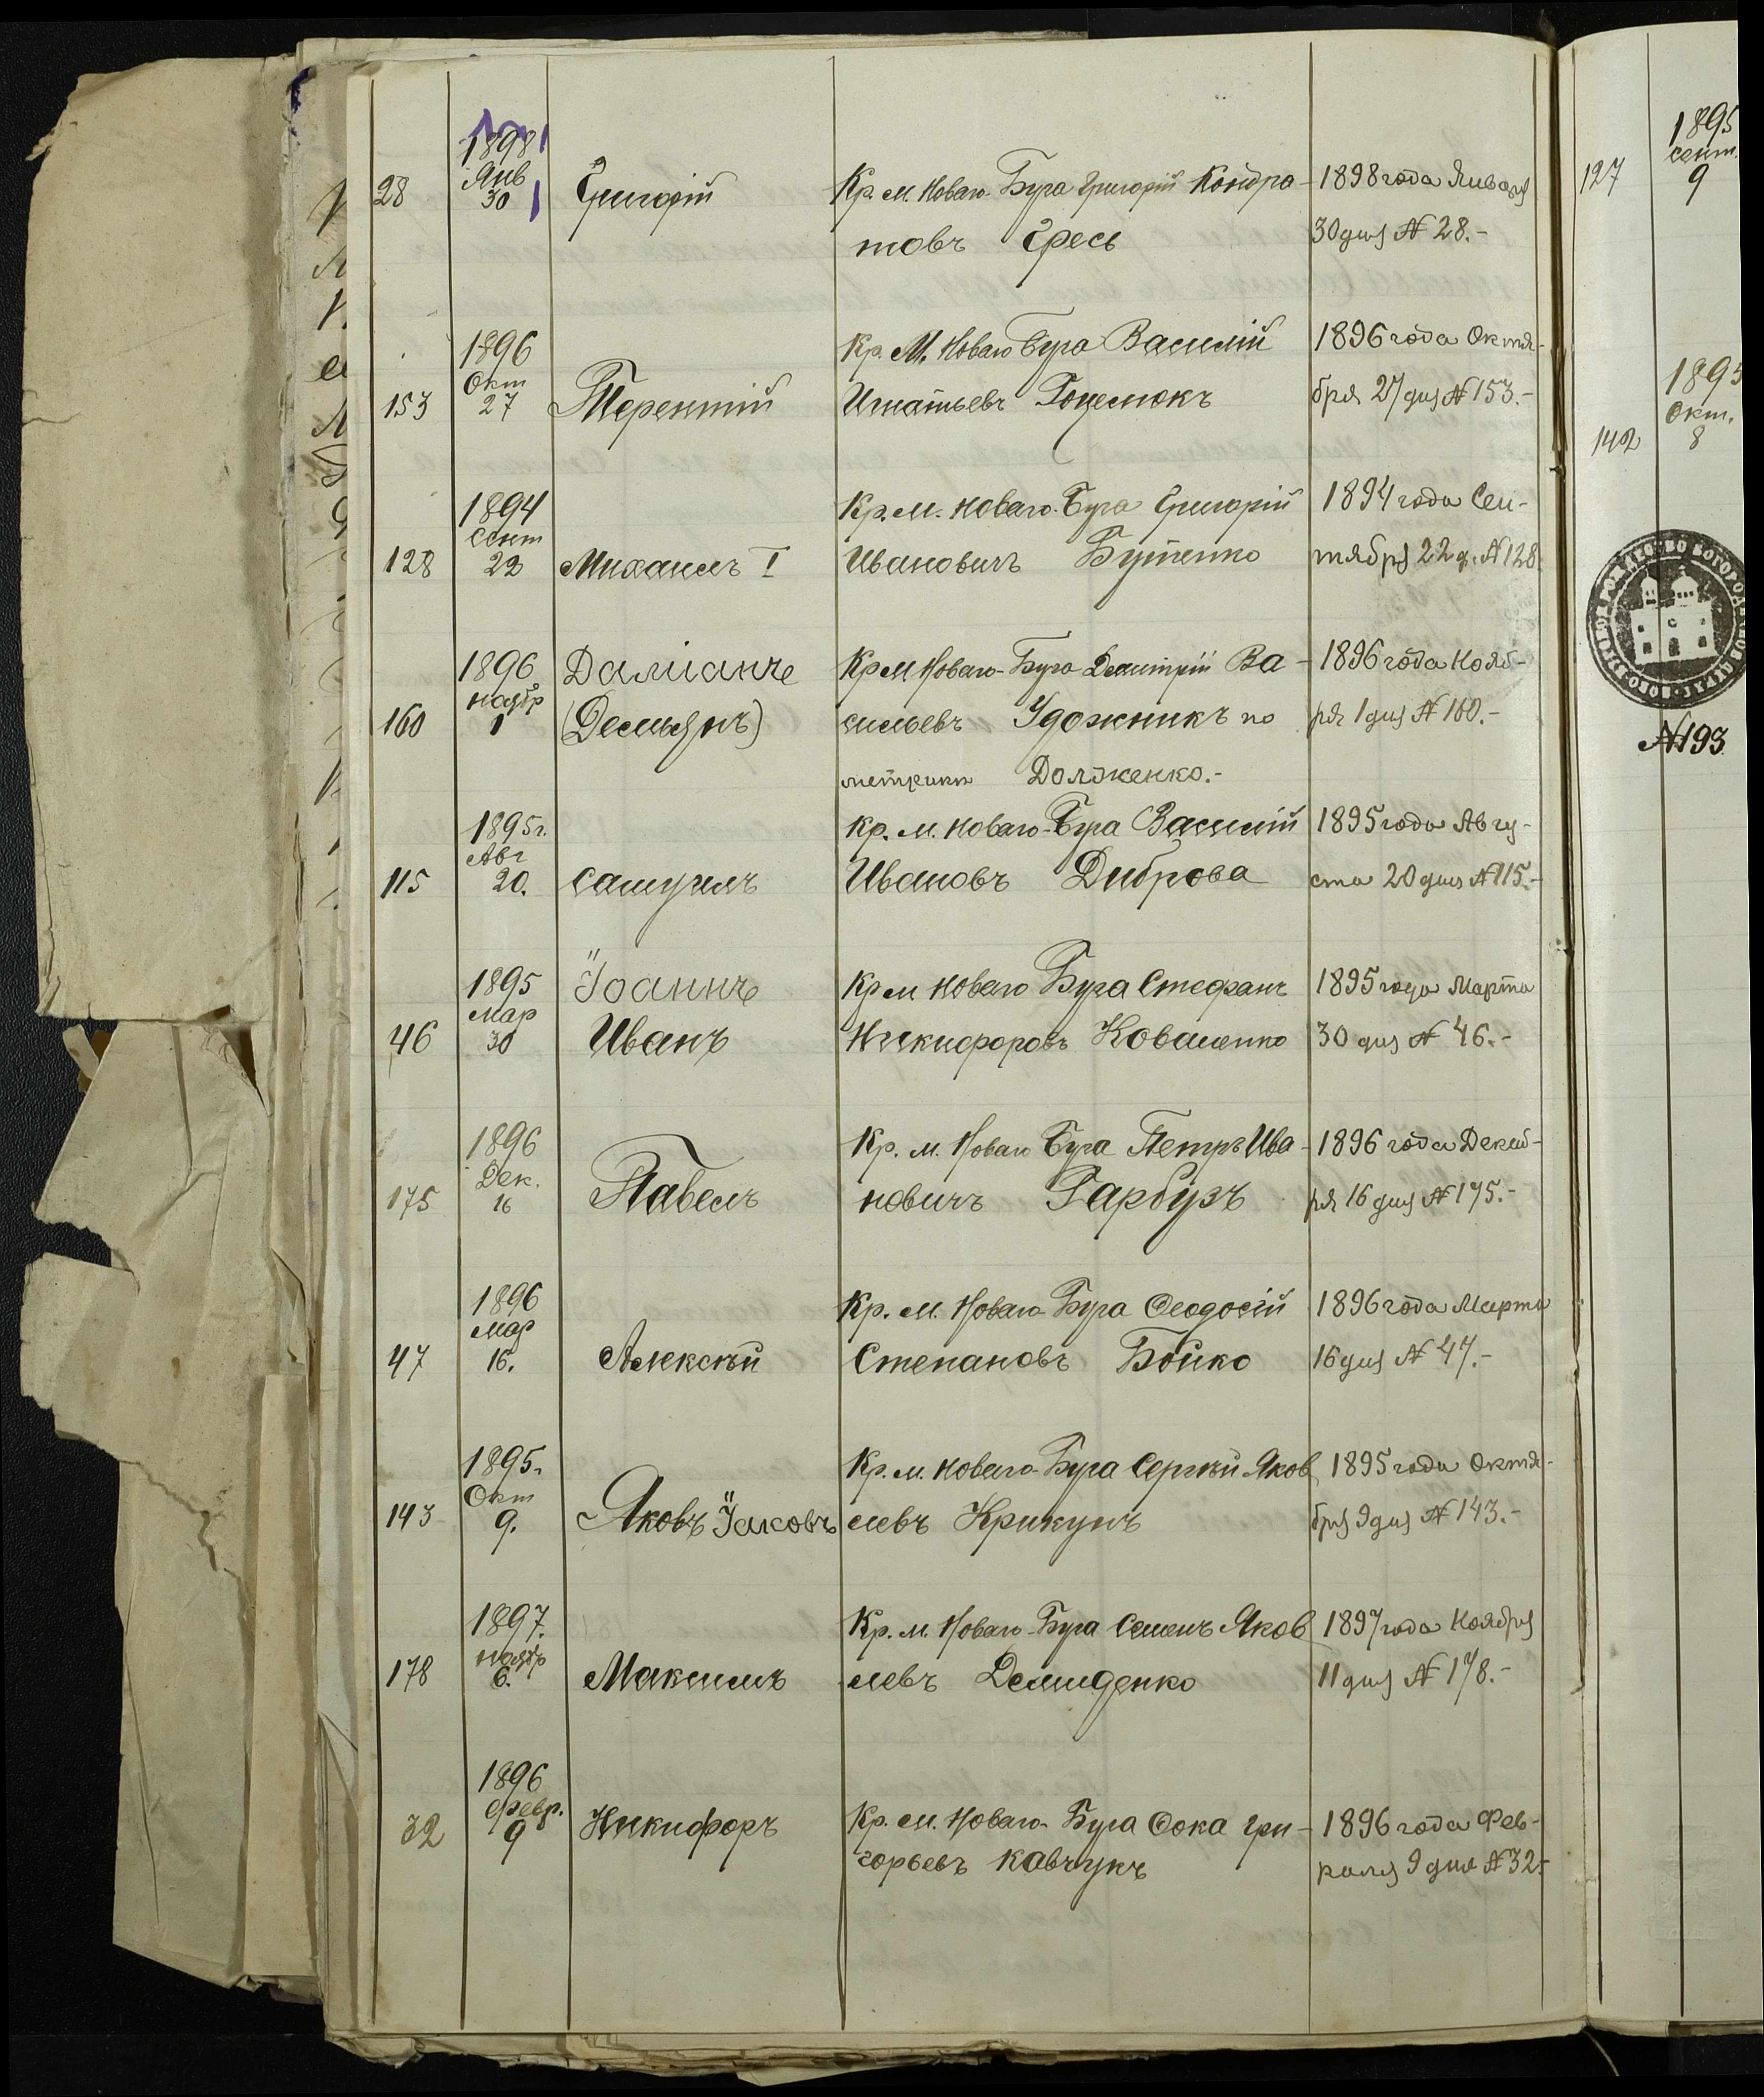 1898
Янв
28 30 Григорій Кр. м. Новаго-Буга Григорій Кондра- 1898 года Января
товъ Гресь 30 дня № 28.-
1896 Кр. М. Новаго Буга Василій 1896 года Октя-
Окт
153 27 Терентій Игнатьевъ Гоцелюкъ бря 27 дня № 153.-
1894 Кр. м. Новаго-Буга Григорій 1894 года Сен-
Сент
128 22 Михаилъ I Ивановичъ Бутенко тября 22 д. № 128.
1896 Даміанъ Кр м Новаго-Буга Димитрій Ва- 1896 года Нояб-
Ноябр
160 1 (Демьянъ) сильевъ Удожникъ по ря 1 дня № 160.-
метрики Долженко.-
1895 г. Кр. м. Новаго-Буга Василій 1895 года Авгу-
Авг
115 20. Самуилъ Ивановъ Диброва ста 20 дня № 115.-
1895 Іоаннъ Кр м Новаго Буга Стефанъ 1895 года Марта
Мар
46 30 Иванъ Никифоровъ Коваленко 30 дня № 46.-
1896 Кр. м. Новаго Буга Петръ Ива- 1896 года Декаб-
Дек.
175 16 Павелъ новичъ Гарбузъ ря 16 дня № 175.-
1896 Кр. м. Новаго-Буга Ѳеодосій 1896 года Марта
Мар
47 16. Алексѣй Степановъ Бойко 16 дня № 47.-
1895. Кр. м. Новаго-Буга Сергѣй Яков 1895 года Октя-
Окт
143 9. Яковъ Іаковъ левъ Крикунъ бря 9 дня № 143.-
1897. Кр. м. Новаго-Буга Семенъ Яков 1897 года Ноября
Ноябр
178 6. Максимъ левъ Демиденко 11 дня № 178.-
1896
Февр.
32 9 Никифоръ Кр. м. Новаго-Буга Ѳока Гри- 1896 года Фев-
горьевъ Кавчукъ раля 9 дня № 32.-
1895
сент.
127 9
1895
Окт.
142 8
№193